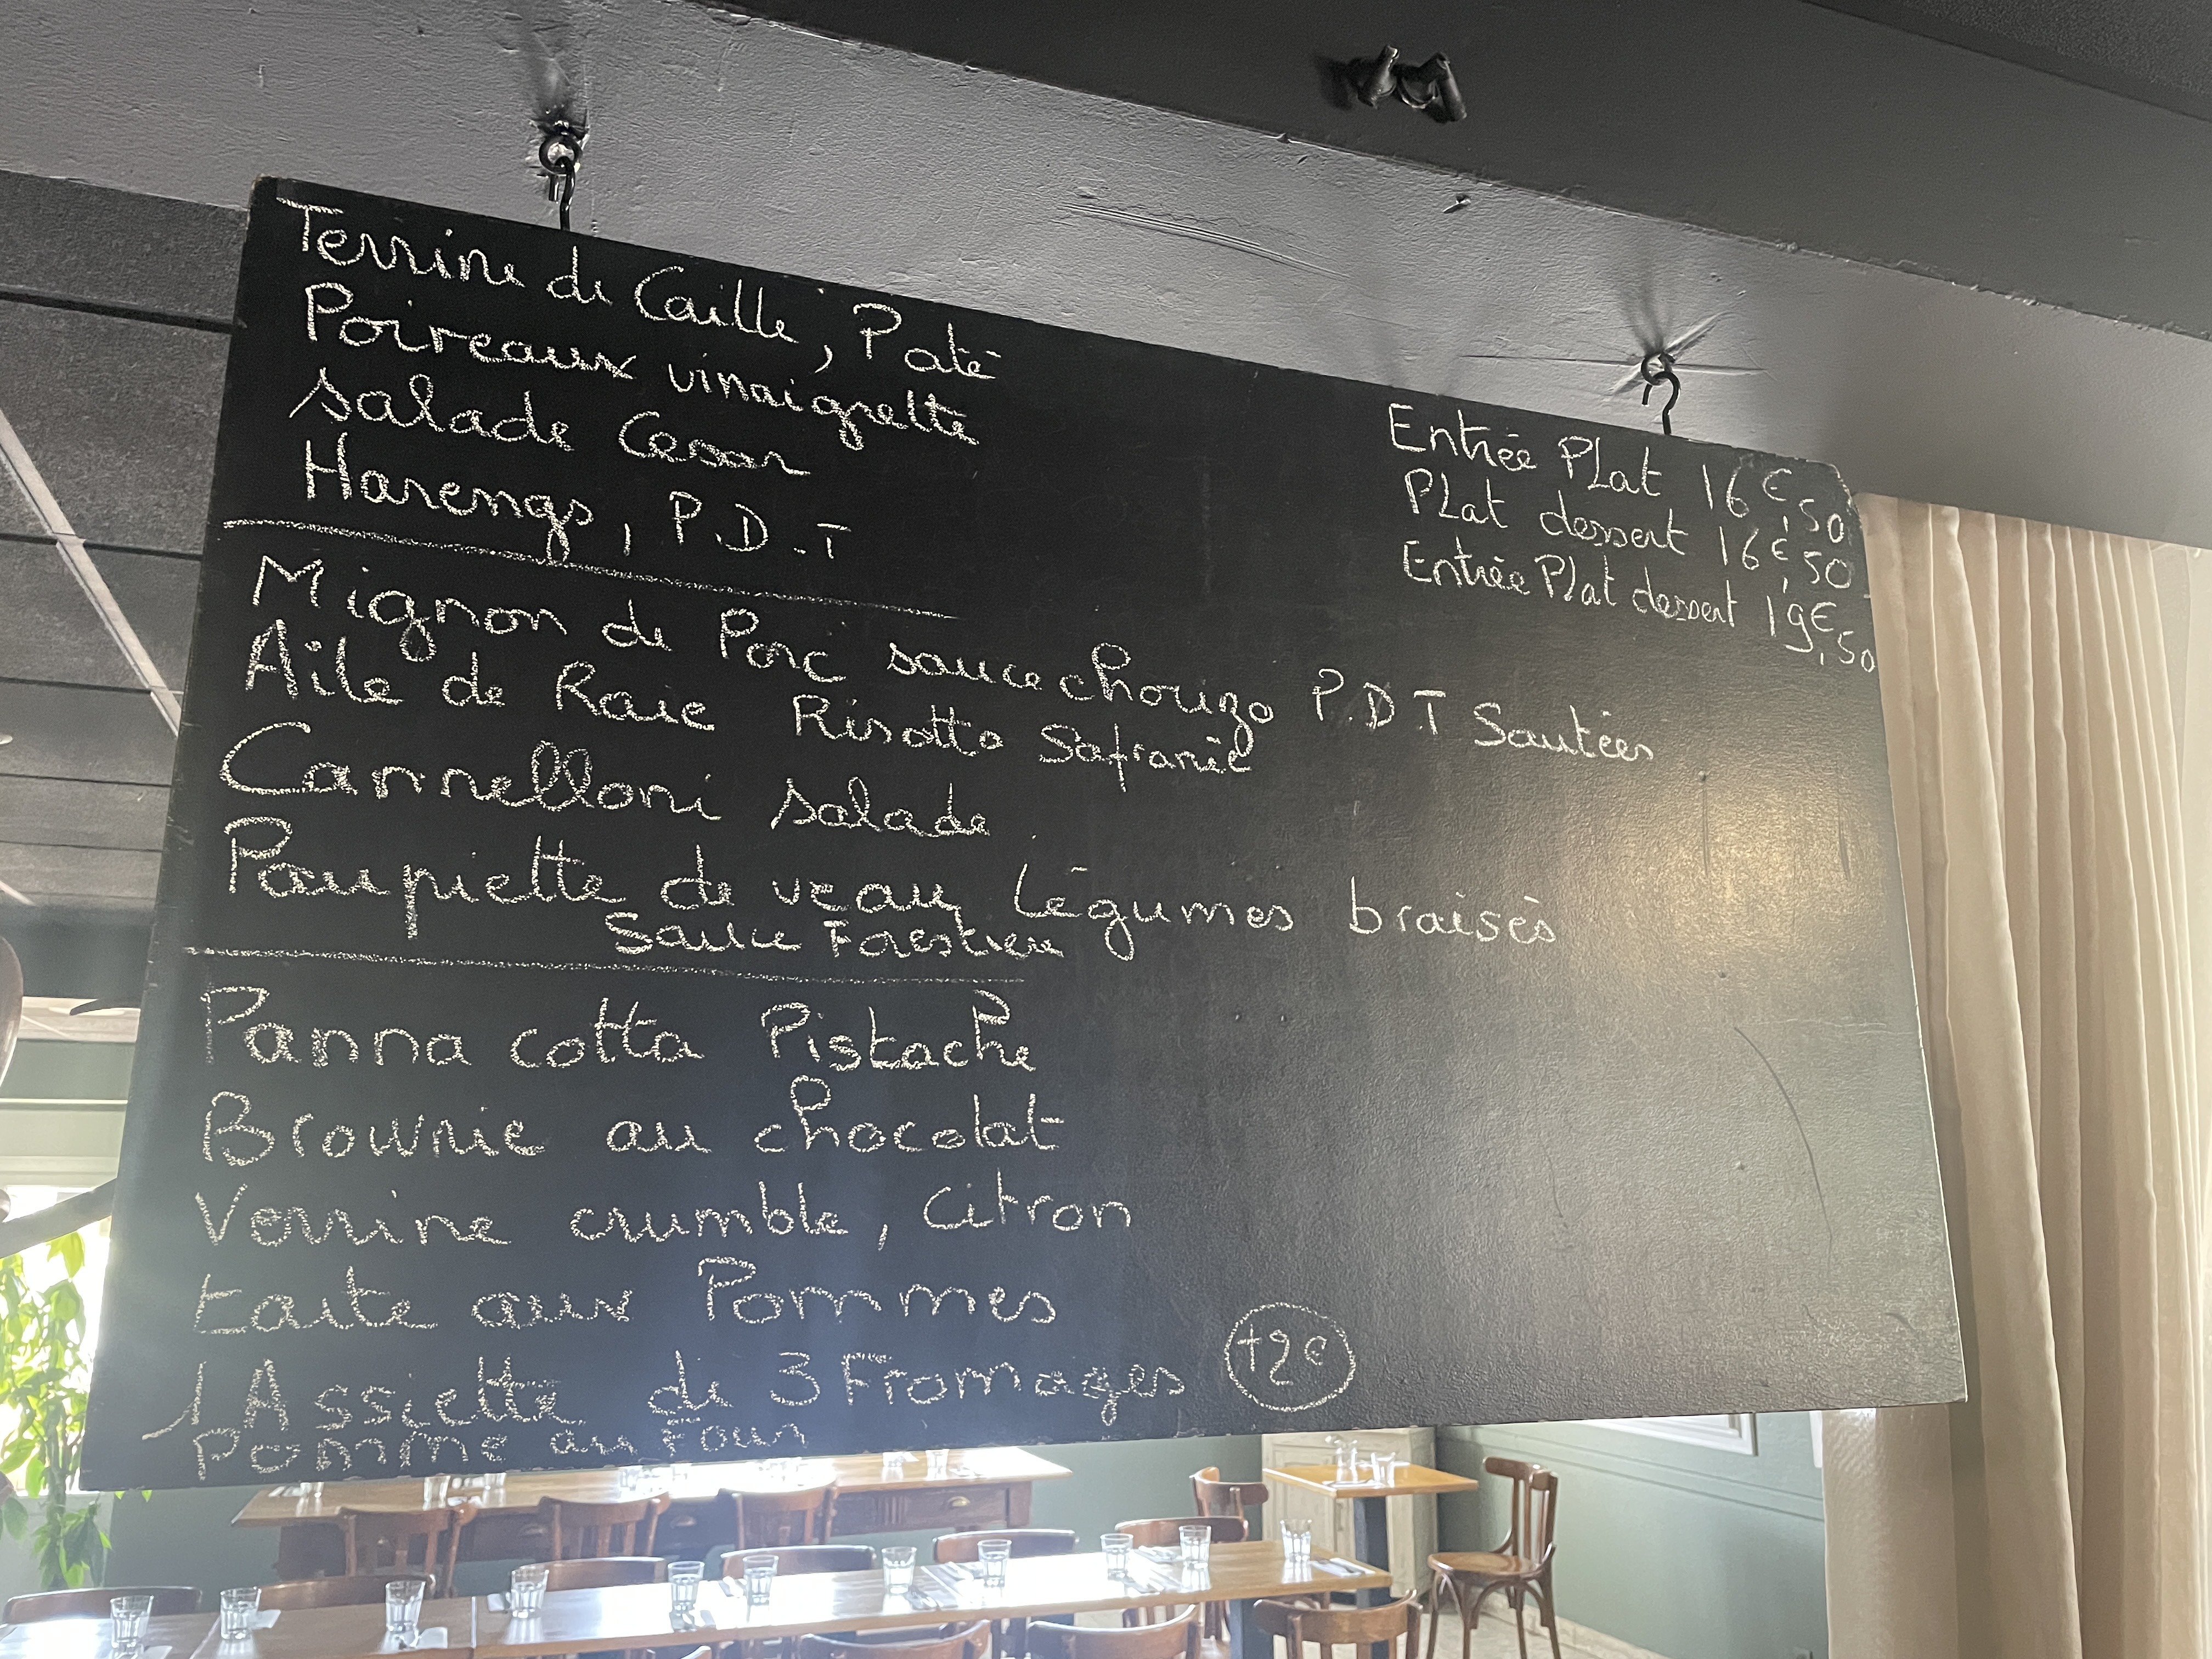 Terrine de Caille, Paté
Poireaux vinaigrette
Salade Cesar
Harengs, P.D.T
Mignon de Porc sauce chorizo P.D.T Sautées
Aile de Raie Risotto Safranié
Cannelloni salade
Paupiette de veau Légumes braisés
Sauce Forestière
Panna cotta Pistache
Brownie au chocolat
Verrine crumble, citron
tarte aux Pommes
1 Assiette de 3 Fromages +2€
Pomme au Four
Entrée Plat 16€,50
Plat dessert 16€,50
Entrée Plat dessert 19€,50